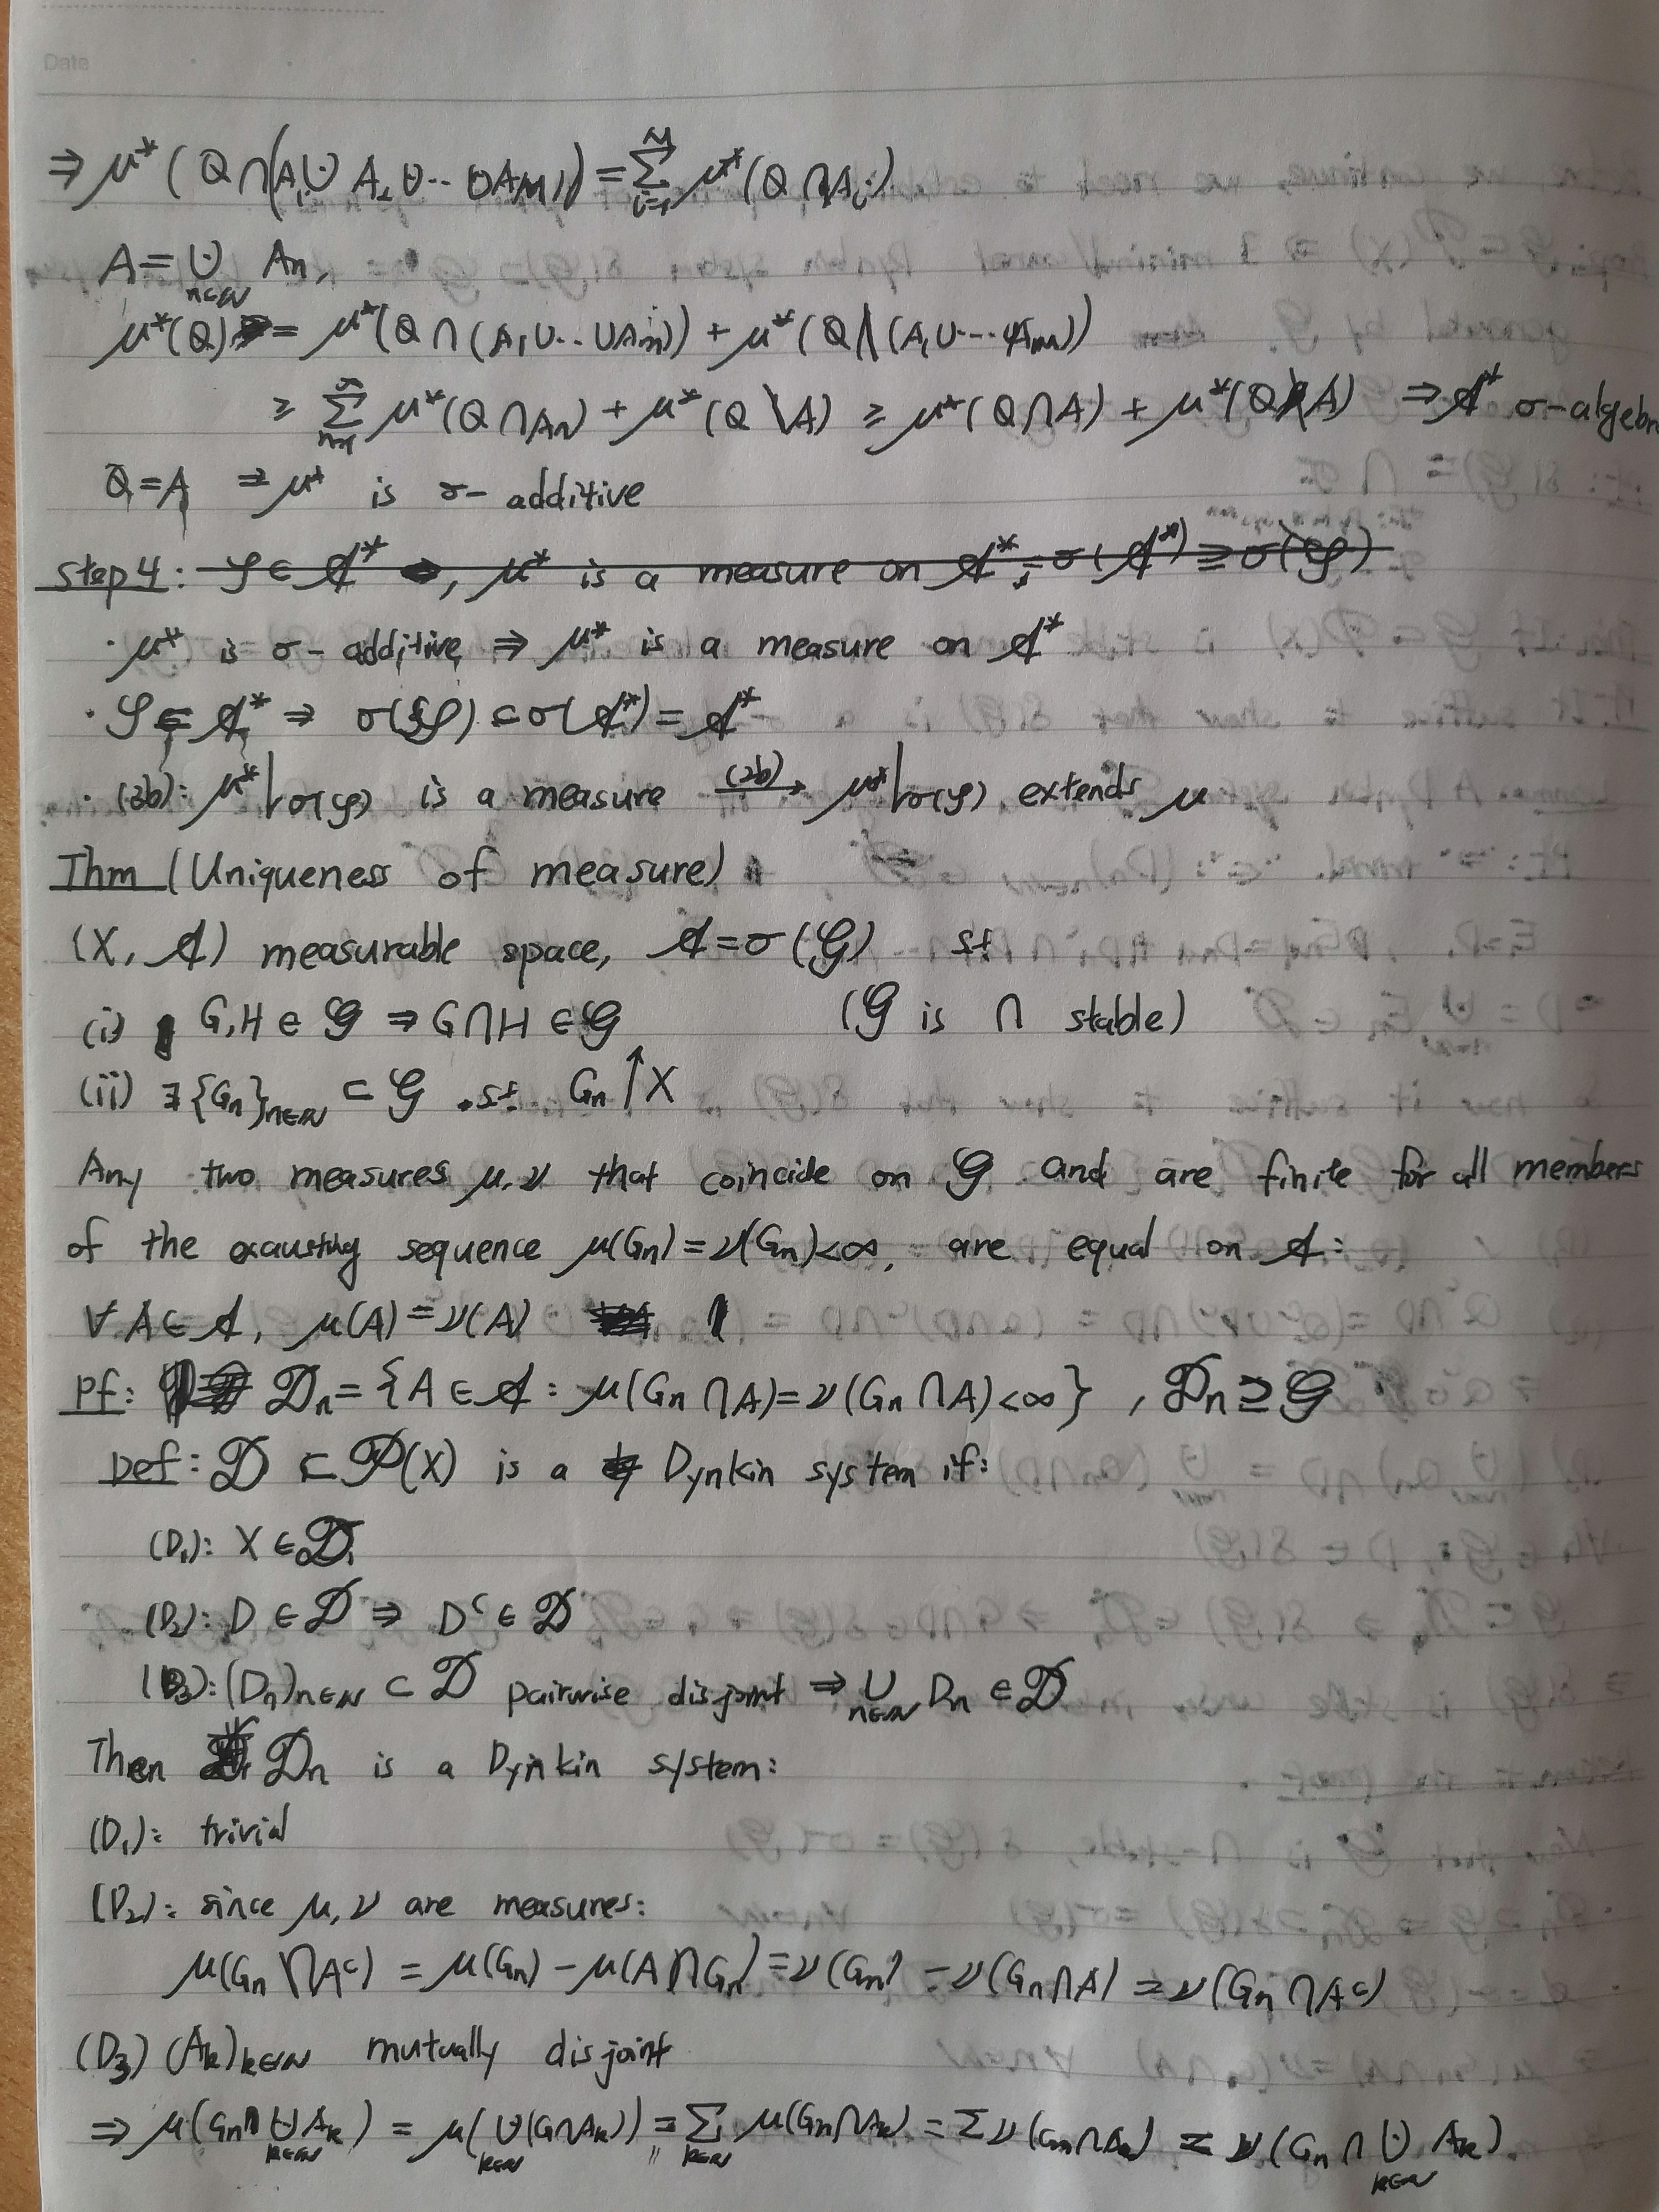 Date
⇒ μ*(Q∩(A₁⊍A₂⊍··⊍A_M)) = Σ_{i=1}^{M} μ*(Q∩A_i)
A = ⊍_{n∈ℕ} A_n,
μ*(Q) = μ*(Q∩(A₁∪··∪A_m)) + μ*(Q\(A₁∪···∪A_m))
≥ Σ_{n=1}^{∞} μ*(Q∩A_n) + μ*(Q\A) ≥ μ*(Q∩A) + μ*(Q\A) ⇒ 𝒜* σ-algebr
Q=A ⇒ μ* is σ-additive
step 4: 𝒮 ⊂ 𝒜*, μ* is a measure on 𝒜*, σ(𝒜*) ⊇ σ(𝒮)
· μ* is σ-additive ⇒ μ* is a measure on 𝒜*
· 𝒮 ⊂ 𝒜* ⇒ σ(𝒮) ⊂ σ(𝒜*) = 𝒜*
· (2b): μ*|σ(𝒮) is a measure —(2b)→ μ*|σ(𝒮) extends μ
Thm (Uniqueness of measure)
(X, 𝒜) measurable space, 𝒜 = σ(𝒢) st
(i) G,H ∈ 𝒢 ⇒ G∩H ∈ 𝒢 (𝒢 is ∩ stable)
(ii) ∃{G_n}_{n∈ℕ} ⊂ 𝒢 .st. G_n ↑ X
Any two measures μ,ν that coincide on 𝒢 and are finite for all members
of the exausting sequence μ(G_n) = ν(G_n) < ∞, are equal on 𝒜:
∀A∈𝒜, μ(A) = ν(A)
Pf: 𝒟_n = {A ∈ 𝒜 : μ(G_n∩A) = ν(G_n∩A) < ∞} , 𝒟_n ⊇ 𝒢
Def: 𝒟 ⊂ 𝒫(X) is a Dynkin system if:
(D₁): X ∈ 𝒟
(D₂): D ∈ 𝒟 ⇒ Dᶜ ∈ 𝒟
(D₃): (D_n)_{n∈ℕ} ⊂ 𝒟 pairwise disjoint ⇒ ∪_{n∈ℕ} D_n ∈ 𝒟
Then 𝒟_n is a Dynkin system:
(D₁): trivial
(D₂): since μ,ν are measures:
μ(G_n∩Aᶜ) = μ(G_n) − μ(A∩G_n) = ν(G_n) − ν(G_n∩A) = ν(G_n∩Aᶜ)
(D₃) (A_k)_{k∈ℕ} mutually disjoint
⇒ μ(G_n∩⊍_{k∈ℕ} A_k) = μ(⊍_{k∈ℕ}(G∩A_k)) = Σ_{k∈ℕ} μ(G_n∩A_k) = Σ ν(G_n∩A_k) = ν(G_n∩⊍_{k∈ℕ} A_k).